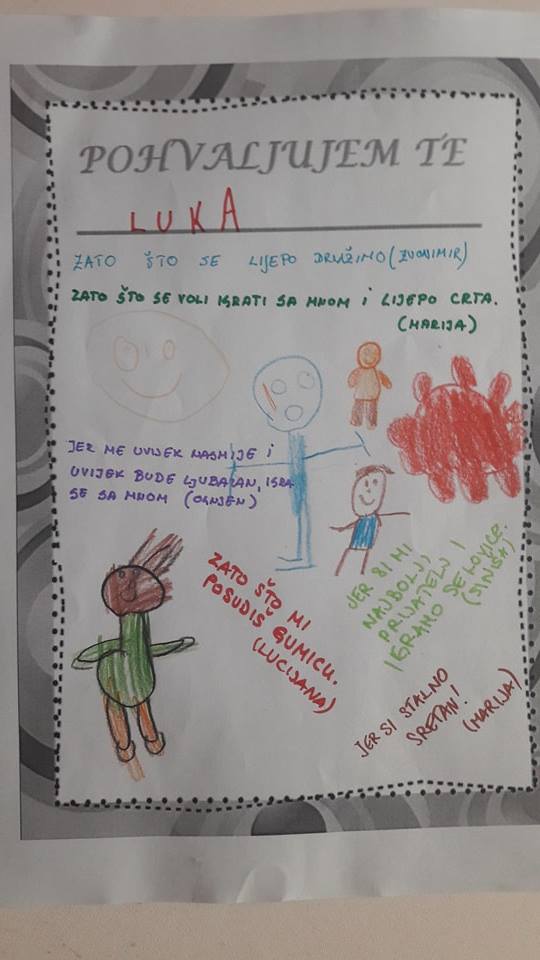 POHVALJUJEM TE
LUKA
ZATO ŠTO SE LIJEPO DRUŽIMO (ZVONIMIR)
ZATO ŠTO SE VOLI IGRATI SA MNOM I LIJEPO CRTA.
(MARIJA)
JER ME UVIJEK NASMIJE I
UVIJEK BUDE LJUBAZAN, IGRA
SE SA MNOM (OGNJEN)
ZATO ŠTO MI
POSUDIŠ GUMICU.
(LUCIJANA)
JER SI MI
NAJBOLJI
PRIJATELJ I
IGRAMO SE LOVICE.
(SINIŠA)
JER SI STALNO
SRETAN!
(MARIJA)